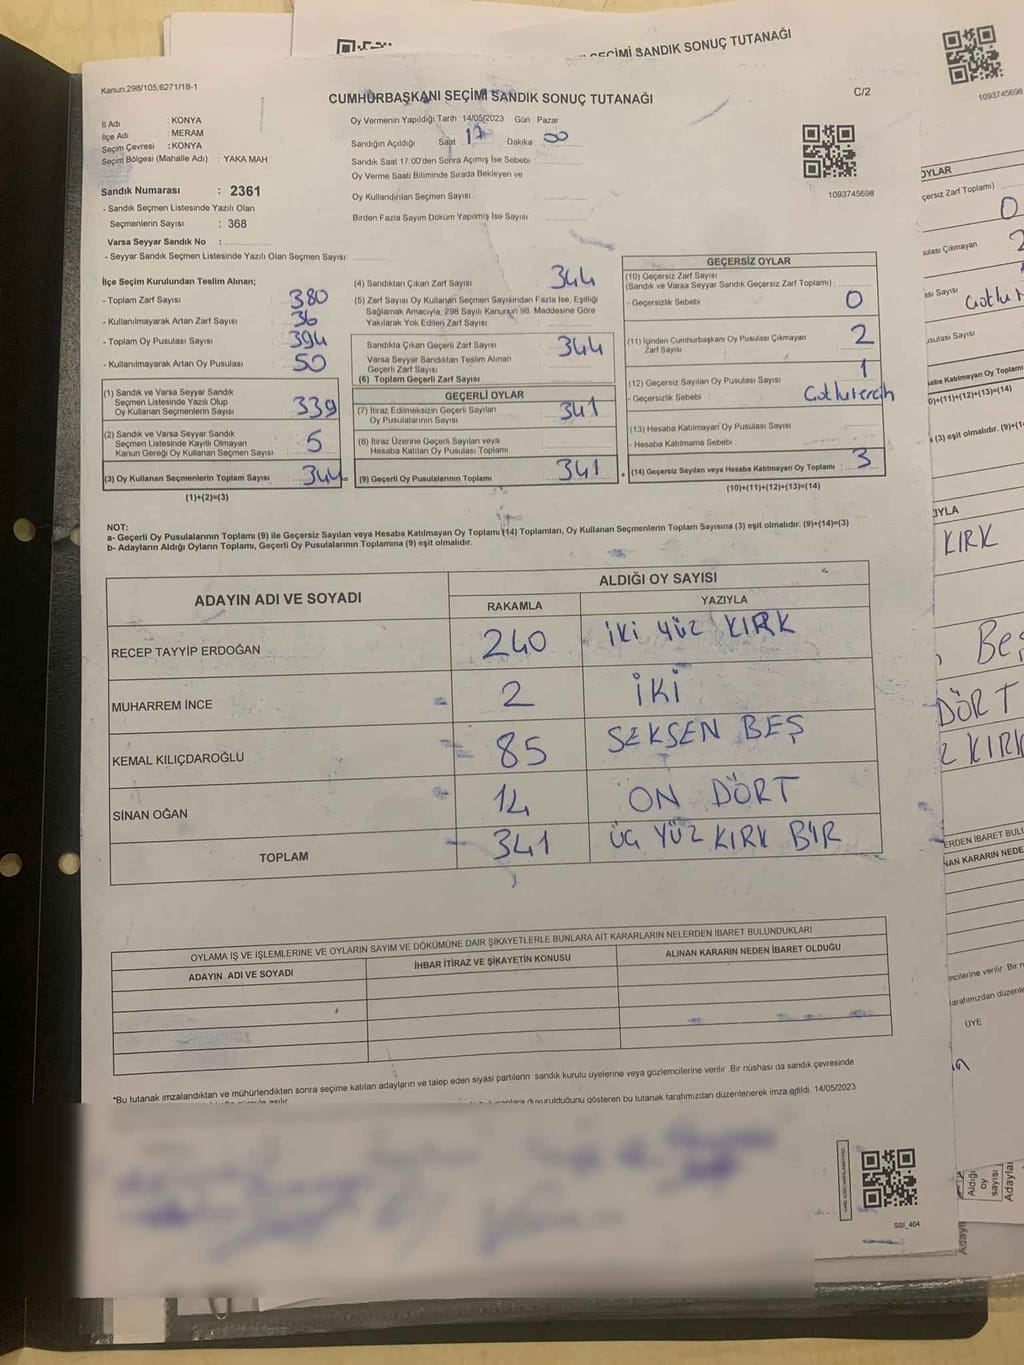 SEÇİMİ SANDIK SONUÇ TUTANAĞI
1093745698
Kanun:298/105,6271/18-1
CUMHURBAŞKANI SEÇİMİ SANDIK SONUÇ TUTANAĞI
C/2
İl Adı : KONYA
İlçe Adı : MERAM
Seçim Çevresi : KONYA
Seçim Bölgesi (Mahalle Adı) : YAKA MAH
Oy Vermenin Yapıldığı Tarih : 14/05/2023 Gün : Pazar
Sandığın Açıldığı Saat 17 Dakika 00
Sandık Saat 17:00'den Sonra Açımış İse Sebebi
Oy Verme Saati Bitiminde Sırada Bekleyen ve
Oy Kullandırılan Seçmen Sayısı
Birden Fazla Sayım Döküm Yapılmış İse Sayısı
1093745698
Sandık Numarası : 2361
- Sandık Seçmen Listesinde Yazılı Olan
Seçmenlerin Sayısı : 368
Varsa Seyyar Sandık No :
- Seyyar Sandık Seçmen Listesinde Yazılı Olan Seçmen Sayısı:
İlçe Seçim Kurulundan Teslim Alınan;
- Toplam Zarf Sayısı : 380
- Kullanılmayarak Artan Zarf Sayısı : 36
- Toplam Oy Pusulası Sayısı : 394
- Kullanılmayarak Artan Oy Pusulası : 50
(1) Sandık ve Varsa Seyyar Sandık
Seçmen Listesinde Yazılı Olup
Oy Kullanan Seçmenlerin Sayısı : 339
(2) Sandık ve Varsa Seyyar Sandık
Seçmen Listesinde Kayıtlı Olmayan
Kanun Gereği Oy Kullanan Seçmen Sayısı : 5
(3) Oy Kullanan Seçmenlerin Toplam Sayısı : 344
(1)+(2)=(3)
(4) Sandıktan Çıkan Zarf Sayısı : 344
(5) Zarf Sayısı Oy Kullanan Seçmen Sayısından Fazla İse, Eşitliği
Sağlamak Amacıyla, 298 Sayılı Kanunun 98. Maddesine Göre
Yakılarak Yok Edilen Zarf Sayısı
Sandıkta Çıkan Geçerli Zarf Sayısı : 344
Varsa Seyyar Sandıktan Teslim Alınan
Geçerli Zarf Sayısı
(6) Toplam Geçerli Zarf Sayısı
GEÇERLİ OYLAR
(7) İtiraz Edilmeksizin Geçerli Sayılan
Oy Pusulalarının Sayısı : 341
(8) İtiraz Üzerine Geçerli Sayılan veya
Hesaba Katılan Oy Pusulası Toplamı
(9) Geçerli Oy Pusulalarının Toplamı : 341
GEÇERSİZ OYLAR
(10) Geçersiz Zarf Sayısı
(Sandık ve Varsa Seyyar Sandık Geçersiz Zarf Toplamı) :
- Geçersizlik Sebebi : 0
(11) İçinden Cumhurbaşkanı Oy Pusulası Çıkmayan
Zarf Sayısı : 2
(12) Geçersiz Sayılan Oy Pusulası Sayısı : 1
- Geçersizlik Sebebi :
(13) Hesaba Katılmayan Oy Pusulası Sayısı
- Hesaba Katılmama Sebebi :
(14) Geçersiz Sayılan veya Hesaba Katılmayan Oy Toplamı : 3
(10)+(11)+(12)+(13)=(14)
NOT:
a- Geçerli Oy Pusulalarının Toplamı (9) ile Geçersiz Sayılan veya Hesaba Katılmayan Oy Toplamı (14) Toplamları, Oy Kullanan Seçmenlerin Toplam Sayısına (3) eşit olmalıdır. (9)+(14)=(3)
b- Adayların Aldığı Oyların Toplamı, Geçerli Oy Pusulalarının Toplamına (9) eşit olmalıdır.
ADAYIN ADI VE SOYADI
ALDIĞI OY SAYISI
RAKAMLA YAZIYLA
RECEP TAYYİP ERDOĞAN 240 İKİ YÜZ KIRK
MUHARREM İNCE 2 İKİ
KEMAL KILIÇDAROĞLU 85 SEKSEN BEŞ
SİNAN OĞAN 14 ON DÖRT
TOPLAM 341 ÜÇ YÜZ KIRK BİR
OYLAMA İŞ VE İŞLEMLERİNE VE OYLARIN SAYIM VE DÖKÜMÜNE DAİR ŞİKAYETLERLE BUNLARA AİT KARARLARIN NELERDEN İBARET BULUNDUKLARI
ADAYIN ADI VE SOYADI İHBAR İTİRAZ VE ŞİKAYETİN KONUSU ALINAN KARARIN NEDEN İBARET OLDUĞU
*Bu tutanak imzalandıktan ve mühürlendikten sonra seçime katılan adayların ve talep eden siyasi partilerin sandık kurulu üyelerine veya gözlemcilerine verilir .Bir nüshası da sandık çevresinde
duyurulduğunu gösteren bu tutanak tarafımızdan düzenlenerek imza edildi. 14/05/2023
SSI_404
OYLAR
0
KIRK
DÖRT
KIRK
ÜYE
Aldığı
oy
sayısı